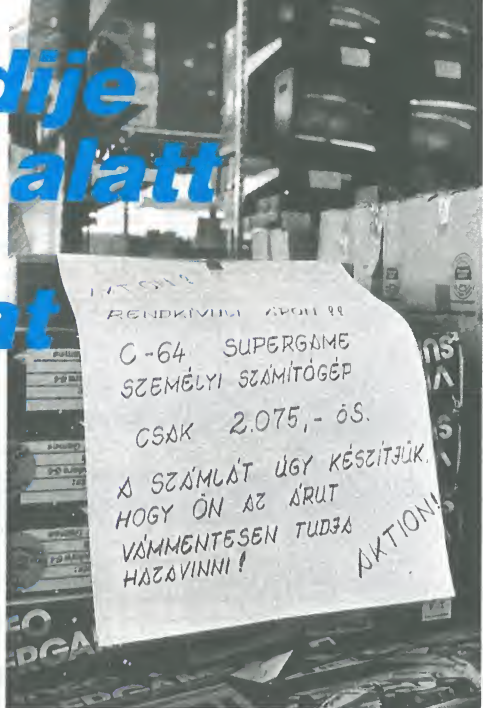 dije
alatt
at
RENDKÍVÜLI ÁRON !!
C-64 SUPERGAME
SZEMÉLYI SZÁMÍTÓGÉP
CSAK 2.075,- ÖS.
A SZÁMLÁT ÚGY KÉSZÍTJÜK,
HOGY ÖN AZ ÁRUT
VÁMMENTESEN TUDJA
HAZAVINNI!
AKTION!